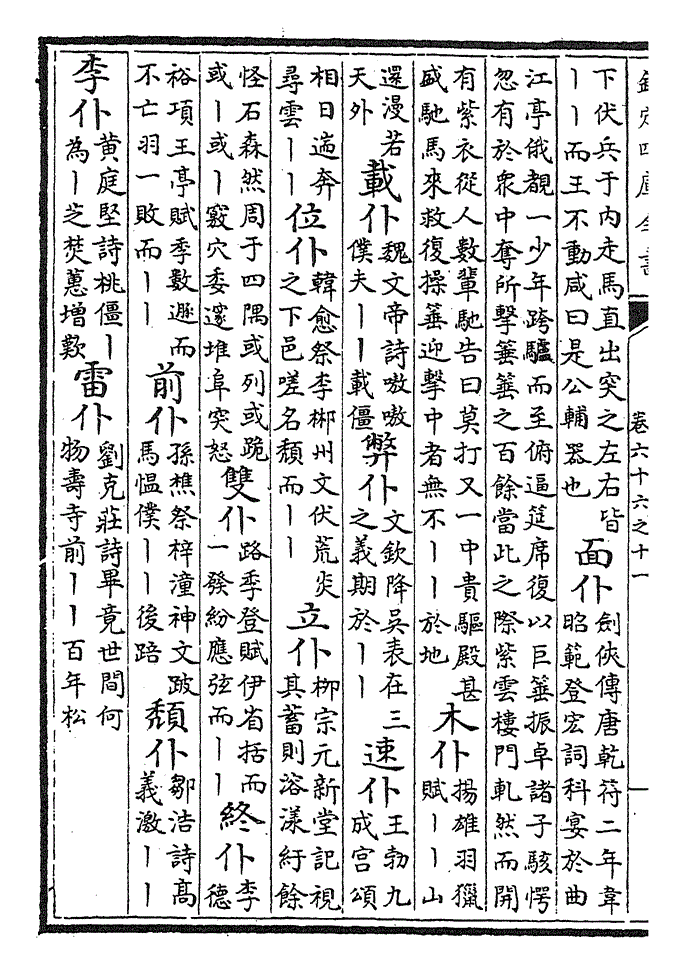 欽定四庫全書
卷六十六之十一
下伏兵于內走馬直出突之左右皆
丨丨而王不動咸曰是公輔器也
面仆
劍俠傳唐乾符二年韋
昭範登宏詞科宴於曲
江亭俄覩一少年跨驢而至俯逼筵席復以巨箠振卓諸子駭愕
忽有於衆中奪所擊箠箠之百餘當此之際紫雲樓門軋然而開
有紫衣從人數輩馳告曰莫打又一中貴驅殿甚
盛馳馬來救復操箠迎擊中者無不丨丨於地
木仆
揚雄羽獵
賦丨丨山
還漫若
天外
載仆
魏文帝詩嗷嗷
僕夫丨丨載僵
弊仆
文欽降吳表在三
之義期於丨丨
速仆
王勃九
成宫頌
相日遄奔
尋雲丨丨
位仆
韓愈祭李郴州文伏荒炎
之下邑嗟名頹而丨丨
立仆
柳宗元新堂記視
其蓄則溶漾紆餘
怪石森然周于四隅或列或跪
或丨或丨竅穴委邃堆阜突怒
雙仆
路季登賦伊省括而
一發紛應弦而丨丨
終仆
李
德
裕項王亭賦季數遯而
不亡羽一敗而丨丨
前仆
孫樵祭梓潼神文跛
馬愠僕丨丨後踣
頹仆
鄒浩詩高
義激丨丨
李仆
黄庭堅詩桃僵丨
為丨芝焚蕙增歎
雷仆
劉克莊詩畢竟世間何
物壽寺前丨丨百年松